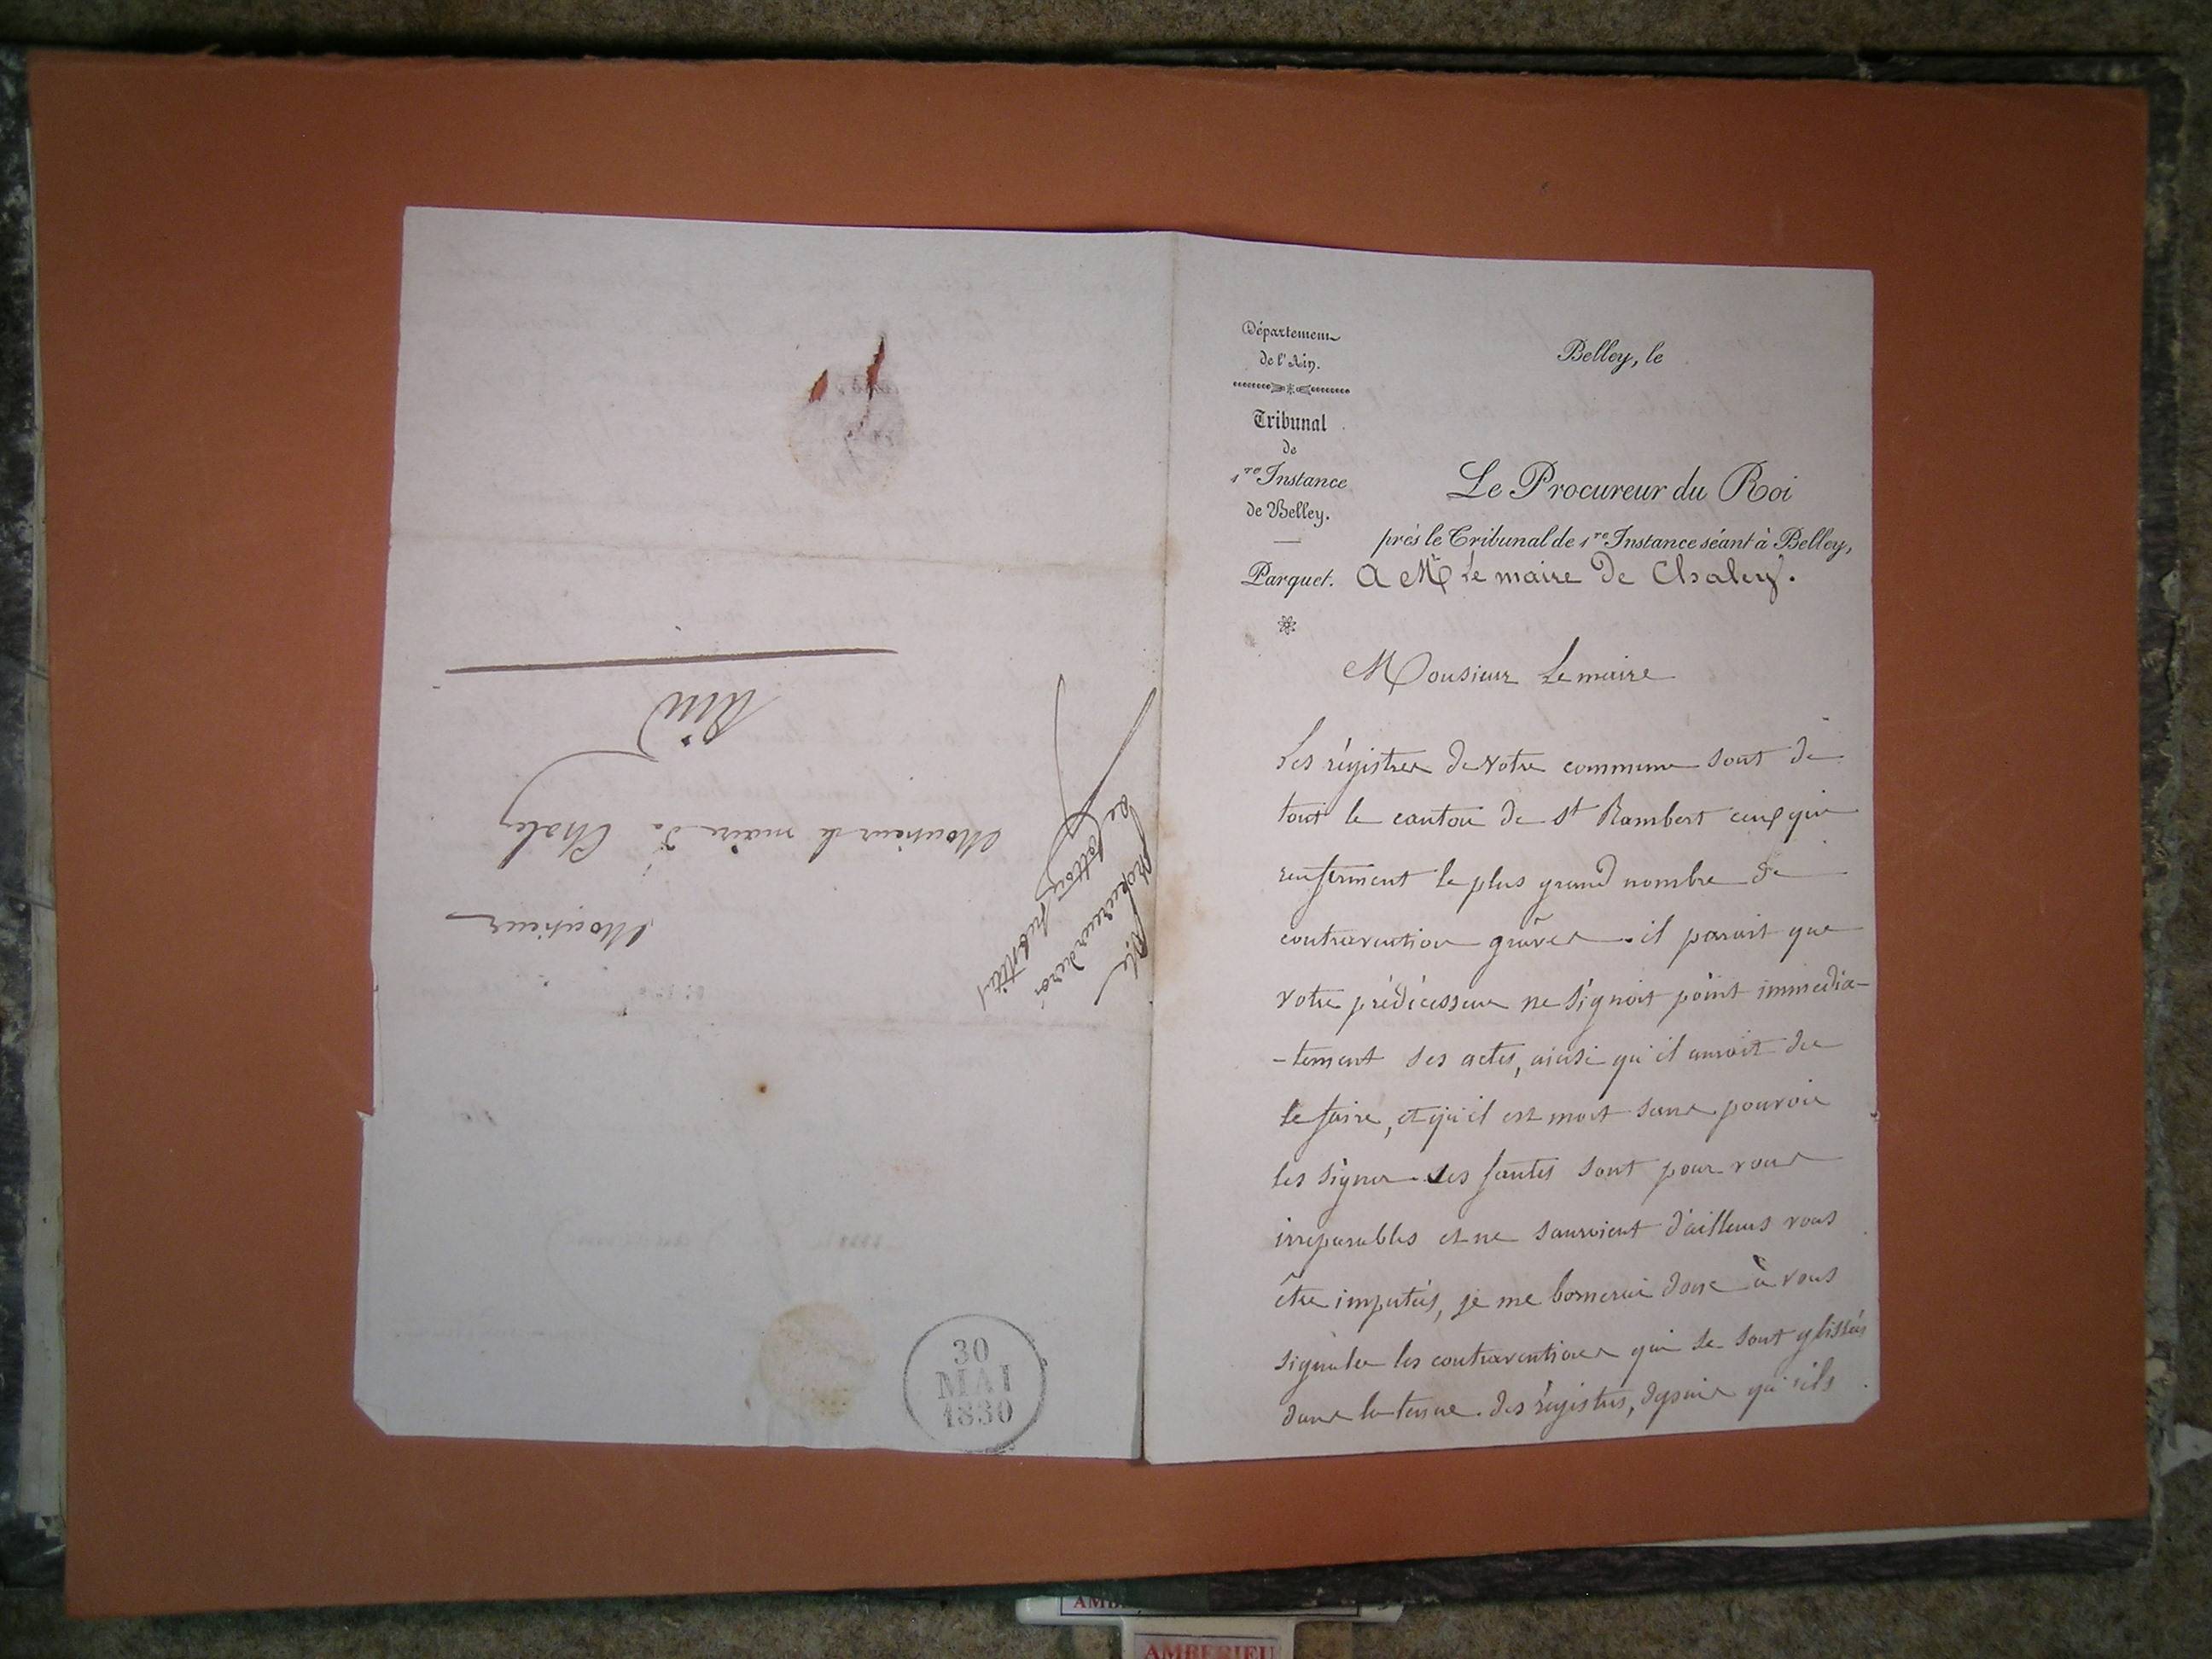 Monsieur
Monsieur le maire de Chaley
Ain
P. le
Procureur du roi
substitut
30
MAI
1830
Département
de l'Ain.
Tribunal
de
1re Instance
de Belley.
Parquet.
Belley, le
Le Procureur du Roi
près le Tribunal de 1re Instance séant à Belley,
A Mr Le maire De Chaley.
Monsieur Le maire
Les régistres de votre commune sont de
tout le canton de St Rambert ceux qui
renferment le plus grand nombre de
contravention graves. il paroit que
votre prédécesseur ne signoit point immédia-
-tement ses actes, ainsi qu'il auroit du
le faire, et qu'il est mort sans pouvoir
les signer. ses fautes sont pour vous
irreparables et ne sauroient d'ailleurs vous
être imputées, je me bornerai donc à vous
signaler les contraventions qui se sont glissées
dans la tenue des régistres, depuis qu'ils
AMBERIEU